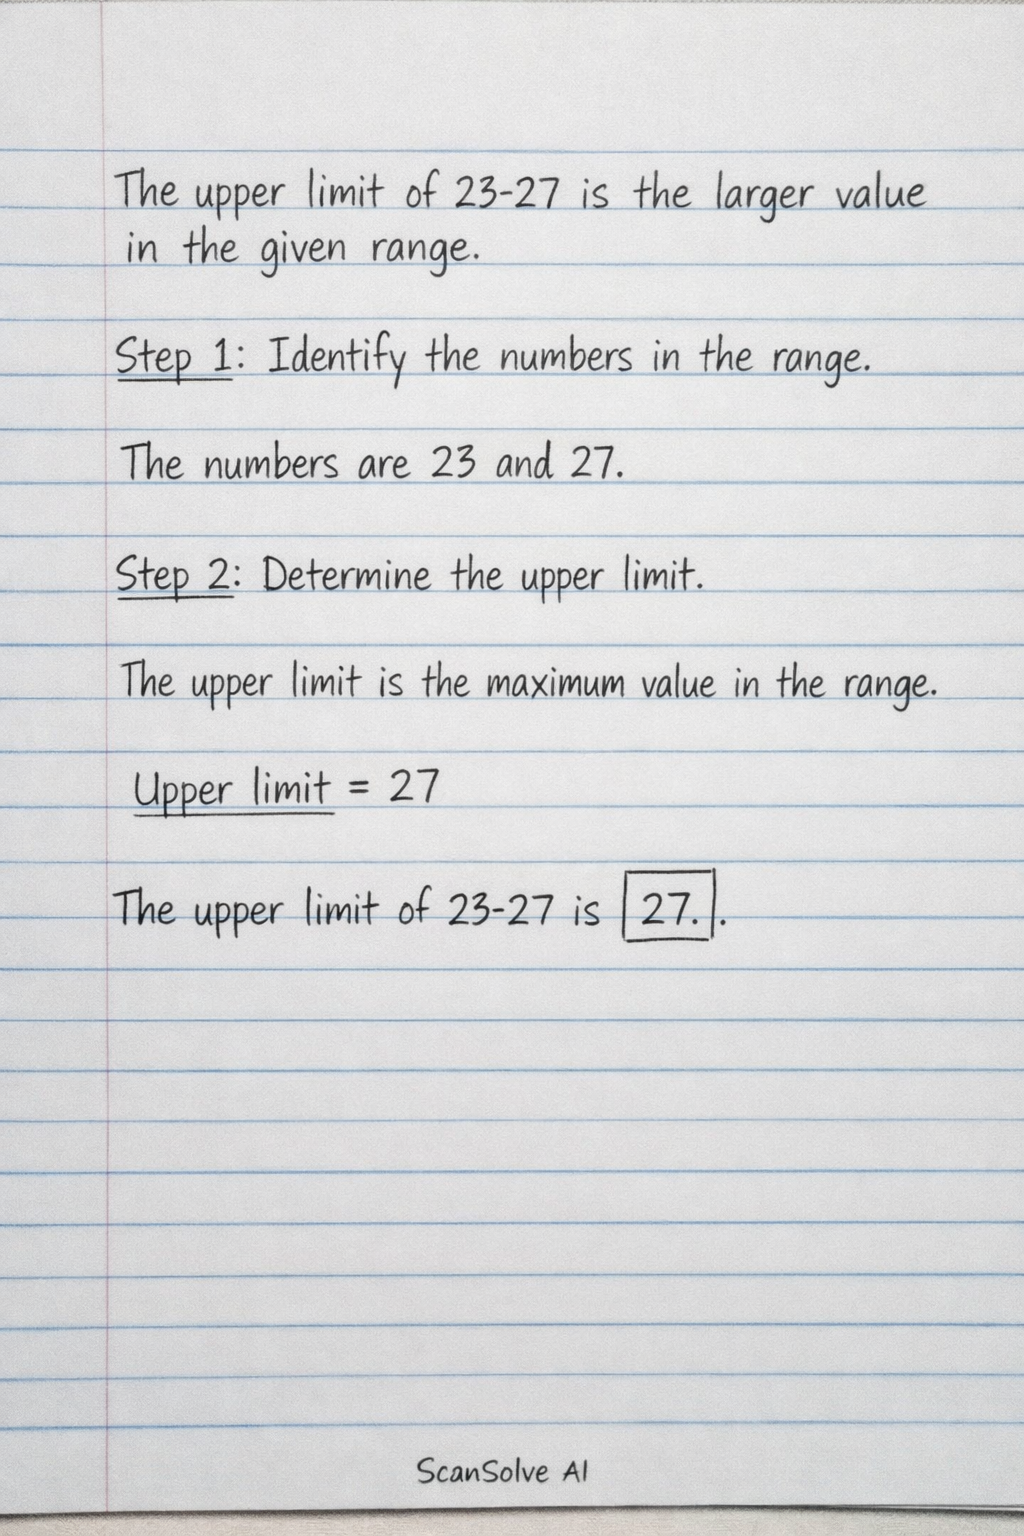 The upper limit of 23-27 is the larger value
in the given range.
Step 1: Identify the numbers in the range.
The numbers are 23 and 27.
Step 2: Determine the upper limit.
The upper limit is the maximum value in the range.
Upper limit = 27
The upper limit of 23-27 is 27..
ScanSolve AI